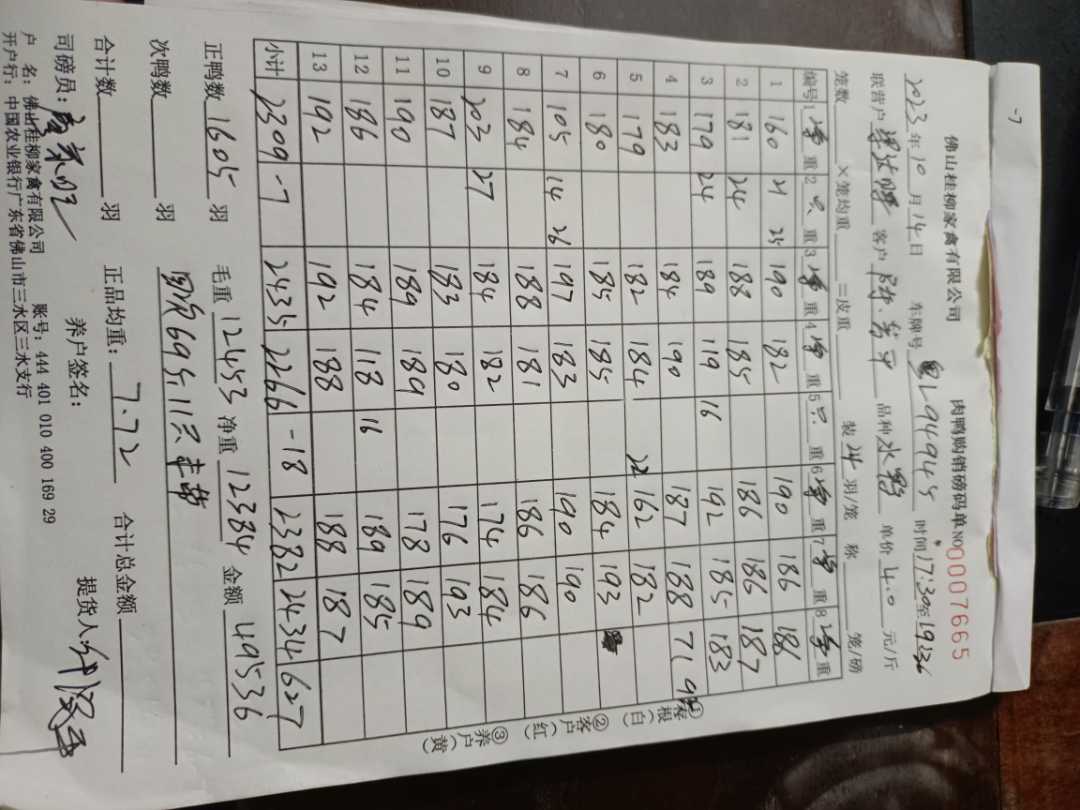 -7
佛山桂柳家禽有限公司 肉鸭购销磅码单 NO 0007665
2023年10月14日 车牌号 L94945 时间17:30至19:36
联营户 客户 陈 平 品种水鸭 单价4.0元/斤
笼数 ×笼均重 =皮重 装24羽/笼 称 笼/磅
编号 1 重 2 只 重 3 重 4 重 5 只 重 6 重 7 重 8 重
1 160 21 25 190 182 190 186 186
2 181 24 188 185 186 186 187
3 179 24 189 19 16 192 185 183
4 183 184 190 187 188 71 9
5 179 182 184 22 162 182
6 180 185 185 184 193
7 105 14 26 197 183 190 190
8 184 188 181 186 186
9 203 27 184 182 174 184
10 187 183 180 176 193
11 190 189 189 178 189
12 186 184 118 16 189 185
13 192 192 188 188 187
小计 2309 -7 2435 2266 -18 2382 2434 627
①存根(白) ②客户(红) ③养户(黄)
正鸭数1605羽 毛重12453 净重12384 金额49536
次鸭数 羽 69斤11只
合计数 羽 正品均重:7.72 合计总金额
司磅员: 养户签名: 提货人:
户 名:佛山桂柳家禽有限公司 账号:444 401 010 400 169 29
开户行:中国农业银行广东省佛山市三水区三水支行